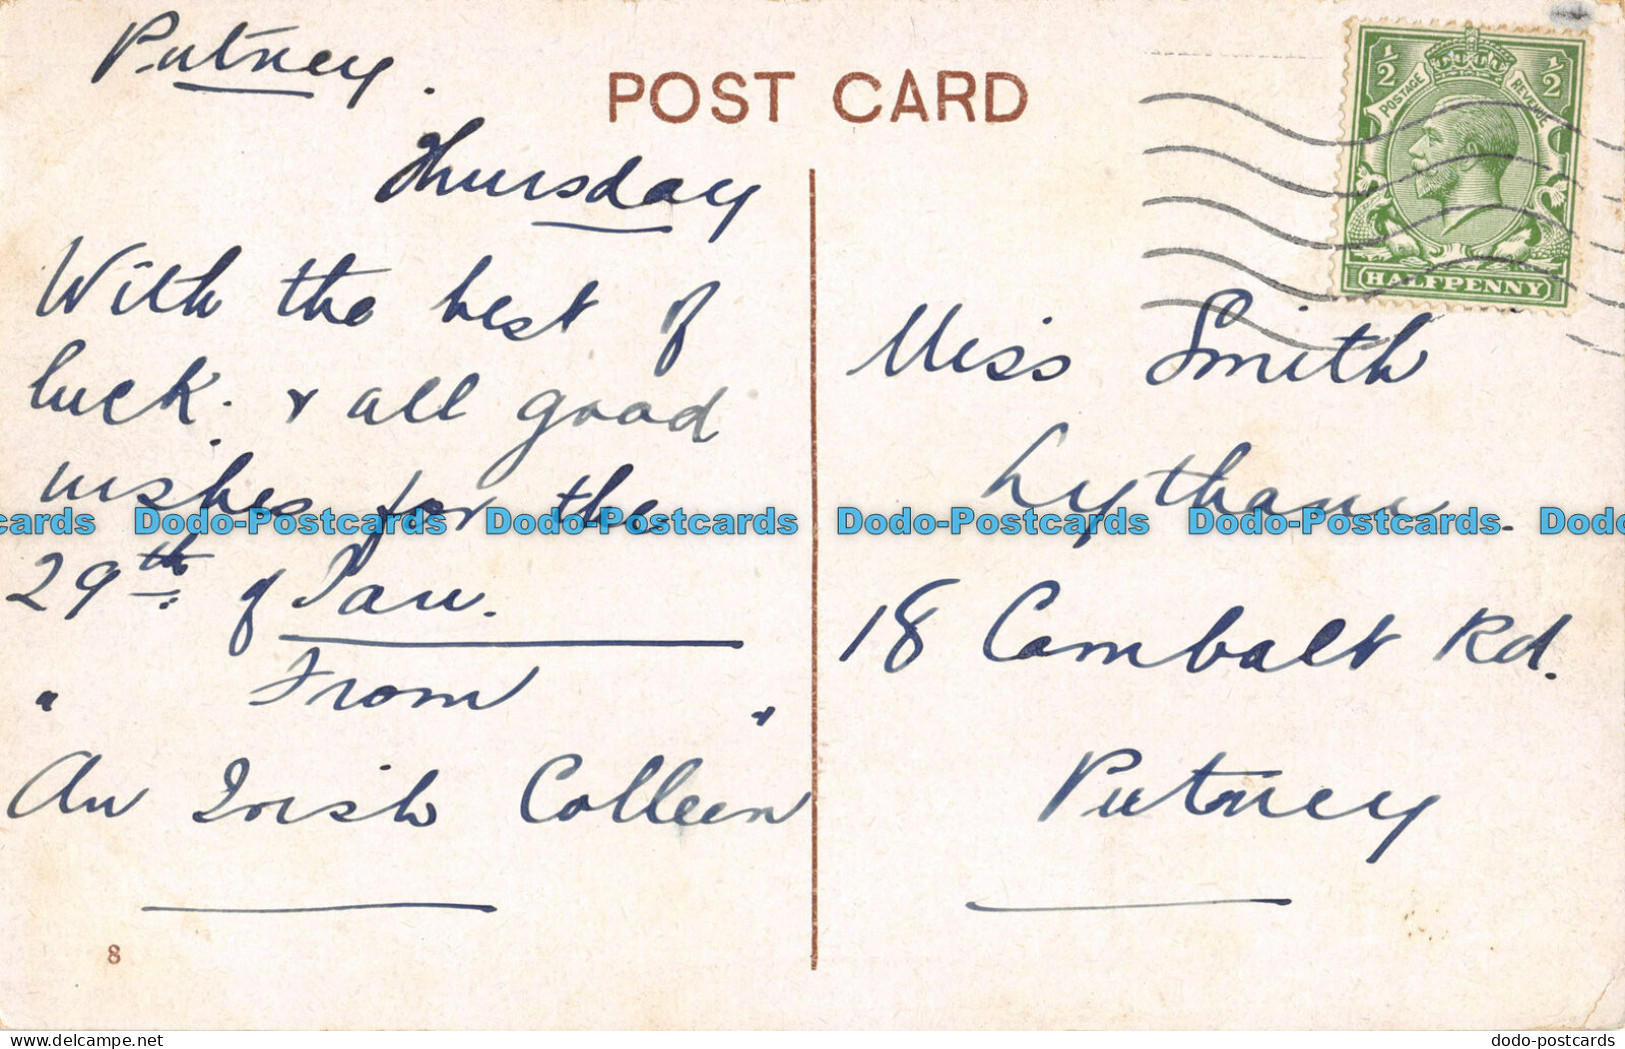 Putney.
POST CARD
Thursday
With the best of
luck. & all good
wishes for the
29th of Jan.
From
" An Irish Colleen "
8
½ ½
POSTAGE REVENUE
HALFPENNY
Miss Smith
Lytham.
18 Cambalt Rd.
Putney
Dodo-Postcards Dodo-Postcards Dodo-Postcards Dodo-Postcards
dodo-postcards